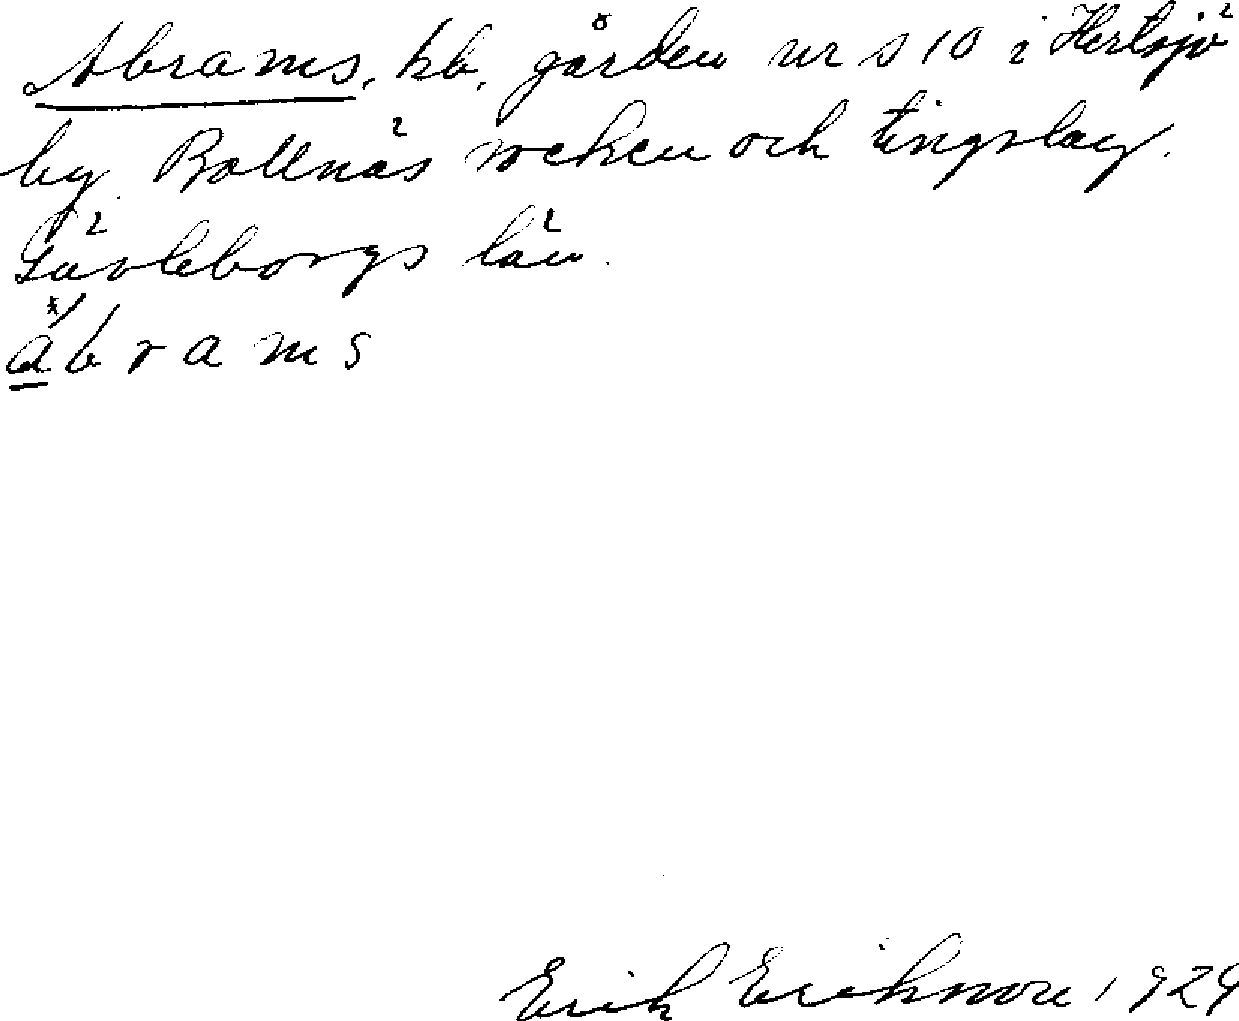 Abrams, hb, gården nr s 10 i Hertsjö
by. Bollnäs socken och tingslag.
Gävleborgs län.
a b r a m s
Erik Eriksson 1924